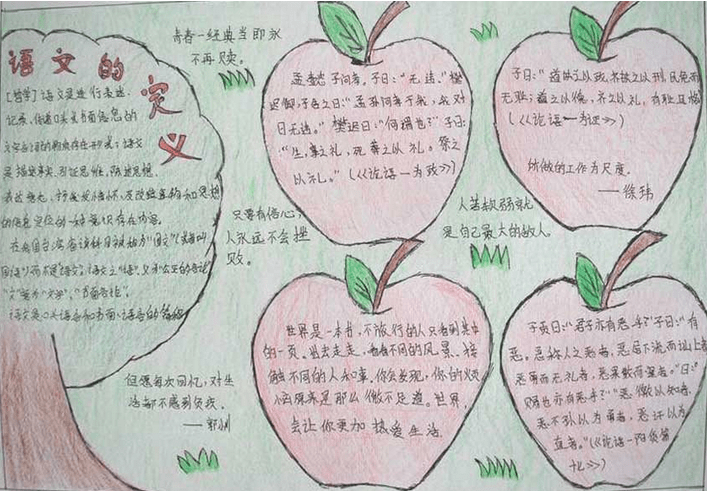 语文的定义
[哲学]语文是进行表述、
记录、传递口头或书面信息的
文字言语的物质存在形式;语文
是描述事实、引证思维、陈述思想、
表达
在我国台湾
国语"
语文是口头语言和书面语言的
青春一经典当即永
不再赎。
孟懿子问孝。子曰:"无违。"樊
迟御,子告之曰:"孟孙问孝于我,我对
曰无违。"樊迟曰:"何谓也?"子曰:
"生,事之以礼,死葬之以礼。祭之
以礼。"(《论语一为政》)
子曰:"道之以政,齐之以刑,民免而
无耻;道之以德,齐之以礼,有耻且格
(《论语一为政》)
所做的工作为尺度。
——徐玮
只要有信心,
人永远不会挫
败。
人若软弱就
是自己最大的敌人。
但愿每次回忆,对生
活都不感到负疚。
——郭小川
世界是一本书,不旅行的人只看到其中
的一页。出去走走,看看不同的风景、接
触不同的人和事。你会发现,你的烦
恼原来是那么微不足道。世界,
会让你更加热爱生活。
子贡曰:"君子亦有恶乎?"子曰:"有
恶。恶称人之恶者,恶居下流而讪上者
恶勇而无礼者,恶果敢而窒者。"曰:"
赐也亦有恶乎?""恶徼以知者,
恶不孙以为勇者,恶讦以为
直者。"(《论语一阳货第